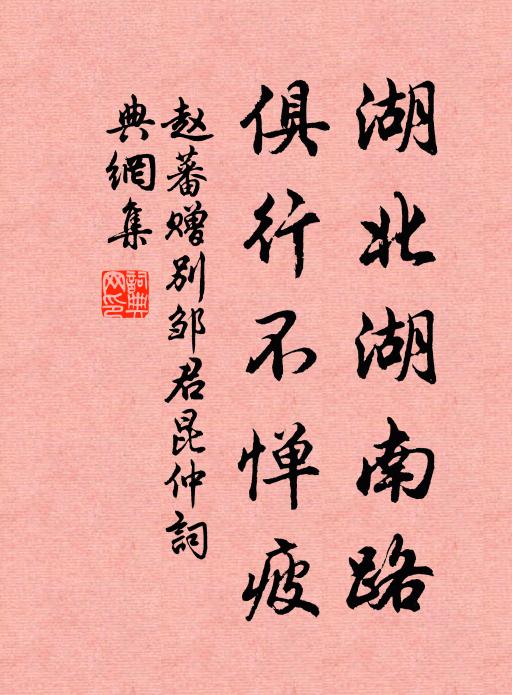 湖北湖南路
俱行不惮疲
赵蕃赠别邹君昆仲詞
典網集
詞典网印